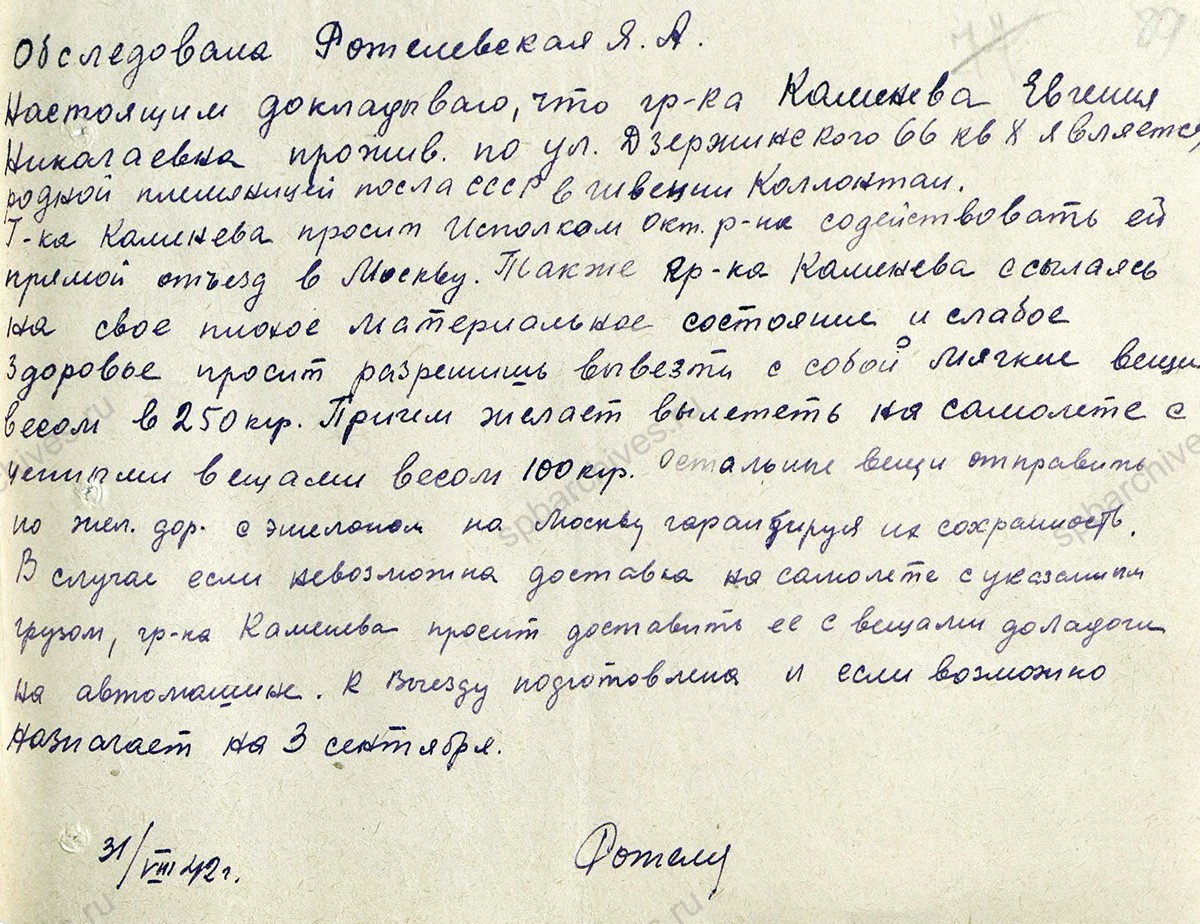 89
Обследовала Фотелевская Я. А.
Настоящим докладываю, что гр-ка Каменева Евгения
Николаевна прожив. по ул. Дзержинского 66 кв X является
родной племяницей посла СССР в Швеции Коллонтаи.
Г-ка Каменева просит Исполком Окт. р-на содействовать ей
прямой отъезд в Москву. Также гр-ка Каменева ссылаясь
на свое плохое материальное состояние и слабое
здоровье просит разрешишь вывезти с собой мягкие вещи
весом в 250 кгр. Причем желает вылететь на самолете с
ценными вещами весом 100 кгр. Остальные вещи отправить
по жел. дор. с эшелоном на Москву гарантируя их сохранность.
В случае если невозможна доставка на самолете с указанным
грузом, гр-ка Каменева просит доставить ее с вещами до Ладоги
на автомашине. К выезду подготовлена и если возможно
назначает на 3 сентября.
31/VIII 42 г.
spbarchives.ru